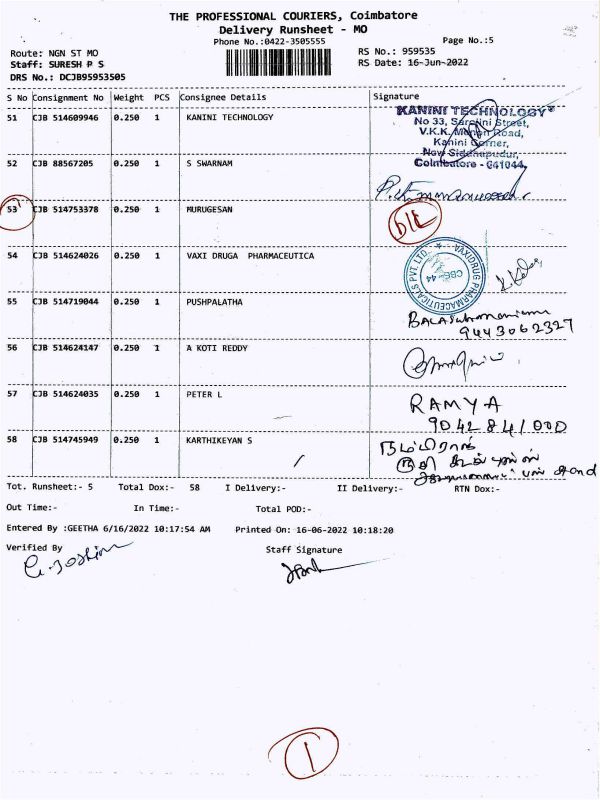 THE PROFESSIONAL COURIERS, Coimbatore
Delivery Runsheet - MO
Phone No.:0422-3505555
Page No.:5
Route: NGN ST MO
RS No.: 959535
Staff: SURESH P S
RS Date: 16-Jun-2022
DRS No.: DCJB95953505
S No Consignment No Weight PCS Consignee Details Signature
51 CJB 514609946 0.250 1 KANINI TECHNOLOGY
KANINI TECHNOLOGY
No 33, Sarojini Street,
V.K.K. Menon Road,
Kanini Corner,
New Siddhapudur,
Coimbatore - 641044.
52 CJB 88567205 0.250 1 S SWARNAM
53 CJB 514753378 0.250 1 MURUGESAN
D/L
54 CJB 514624026 0.250 1 VAXI DRUGA PHARMACEUTICA
VAXIDRUG PHARMACEUTICALS PVT LTD.
CBE-44
55 CJB 514719044 0.250 1 PUSHPALATHA
BALASubramaniam
9443062327
56 CJB 514624147 0.250 1 A KOTI REDDY
57 CJB 514624035 0.250 1 PETER L
RAMYA
9042841000
58 CJB 514745949 0.250 1 KARTHIKEYAN S
Tot. Runsheet:- 5 Total Dox:- 58 I Delivery:- II Delivery:- RTN Dox:-
Out Time:- In Time:- Total POD:-
Entered By :GEETHA 6/16/2022 10:17:54 AM Printed On: 16-06-2022 10:18:20
Verified By Staff Signature
1